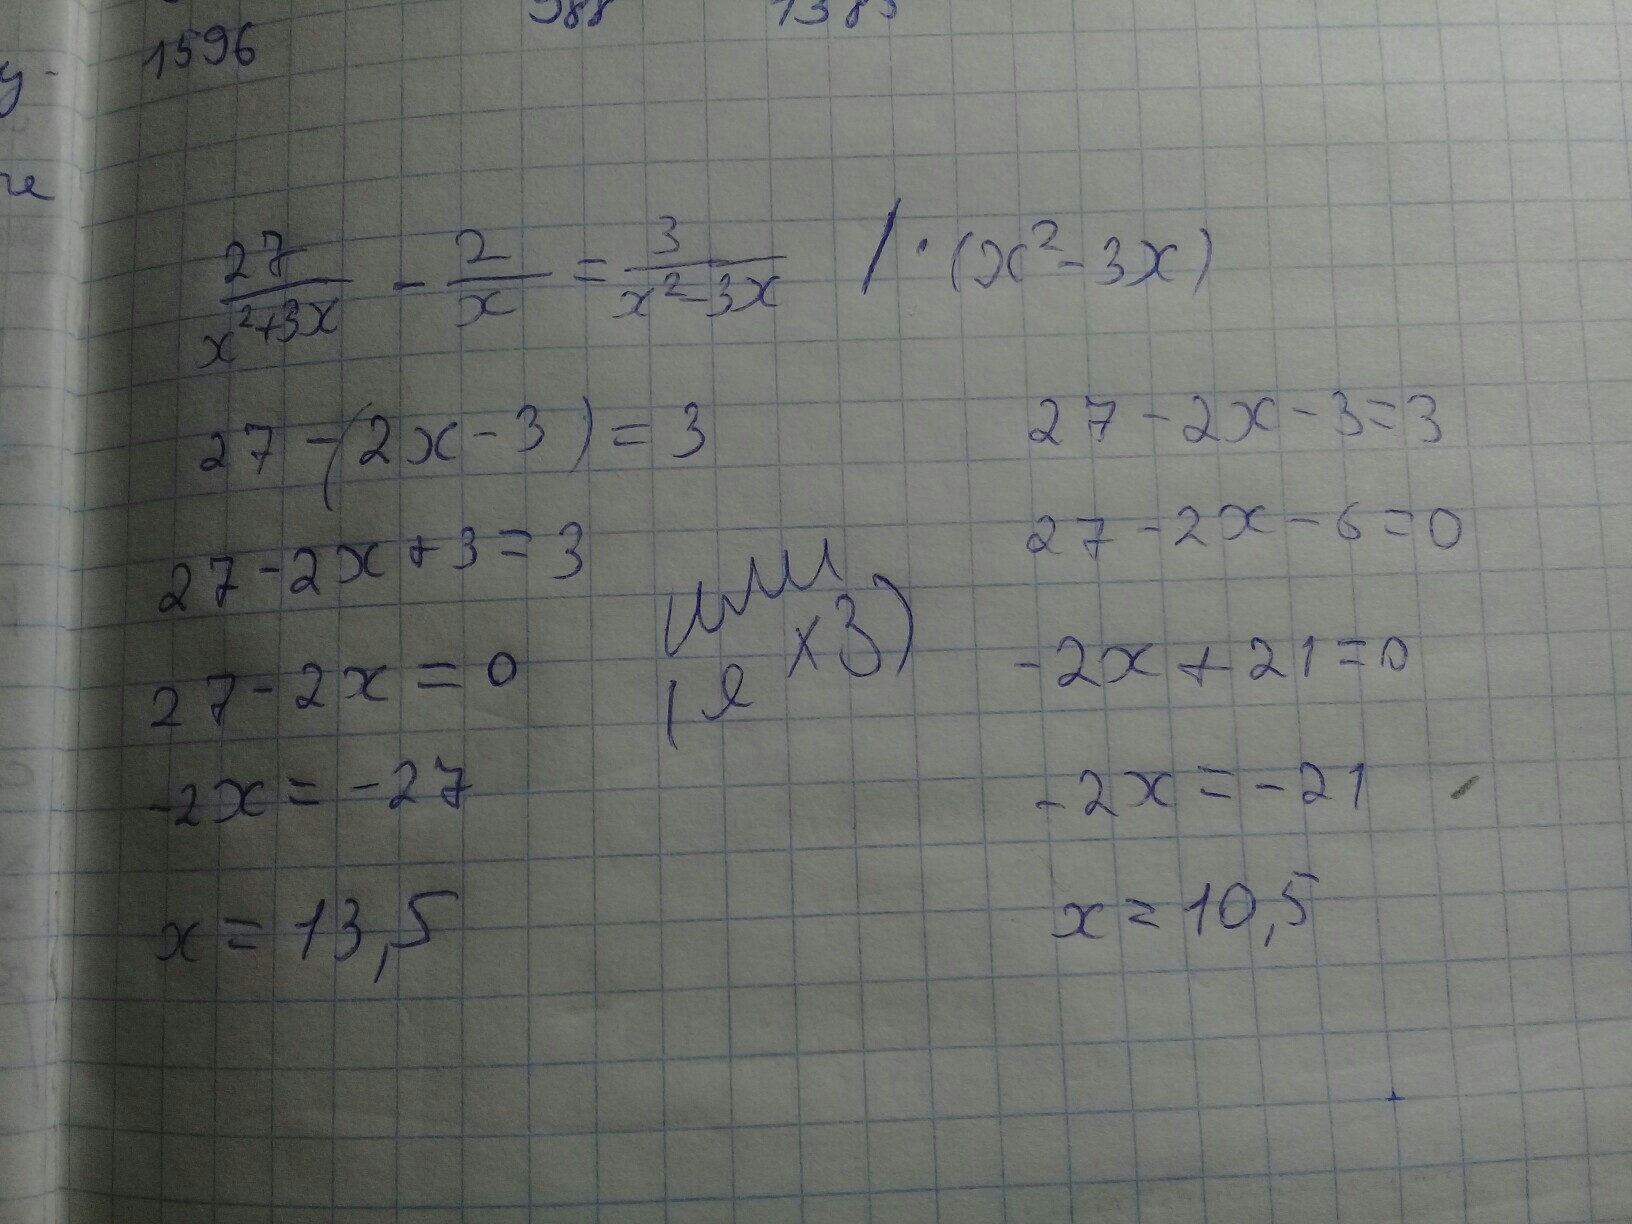 1596
27/(x²+3x) - 2/x = 3/(x²-3x) / · (x²-3x)
27 - (2x - 3) = 3
27 - 2x + 3 = 3
27 - 2x = 0
-2x = -27
x = 13,5
или
27 - 2x - 3 = 3
27 - 2x - 6 = 0
-2x + 21 = 0
-2x = -21
x = 10,5